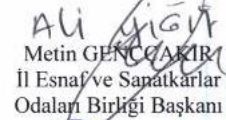 Ali Yiğit
Metin GENÇÇAKIR
İl Esnaf ve Sanatkârlar
Odaları Birliği Başkanı